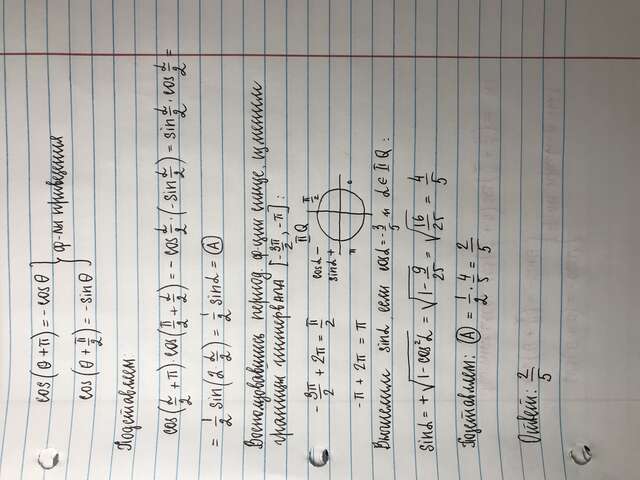 cos(θ+π) = -cosθ
cos(θ+π/2) = -sinθ } ф-лы приведения
Подставляем
cos(α/2+π)·cos(π/2+α/2) = -cos α/2·(-sin α/2) = sin α/2·cos α/2 =
= 1/2 sin(2 α/2) = 1/2 sinα = Ⓐ
Воспользовавшись период. ф-ции синус, изменим
границы интервала [-3π/2, -π]:
-3π/2 + 2π = π/2
-π + 2π = π
II Q
cosα -
sinα +
π/2
π
0
Вычислим sinα, если cosα = -3/5 и α ∈ II Q:
sinα = +√(1-cos²α) = √(1-9/25) = √(16/25) = 4/5
Подставляем: Ⓐ = 1/2·4/5 = 2/5
Ответ: 2/5